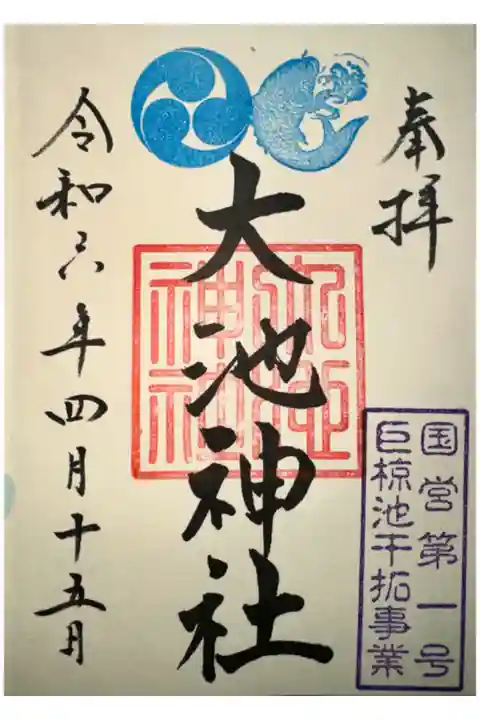 奉拝
大池神社
大池神社
令和六年四月十五日
国営第一号
巨椋池干拓事業